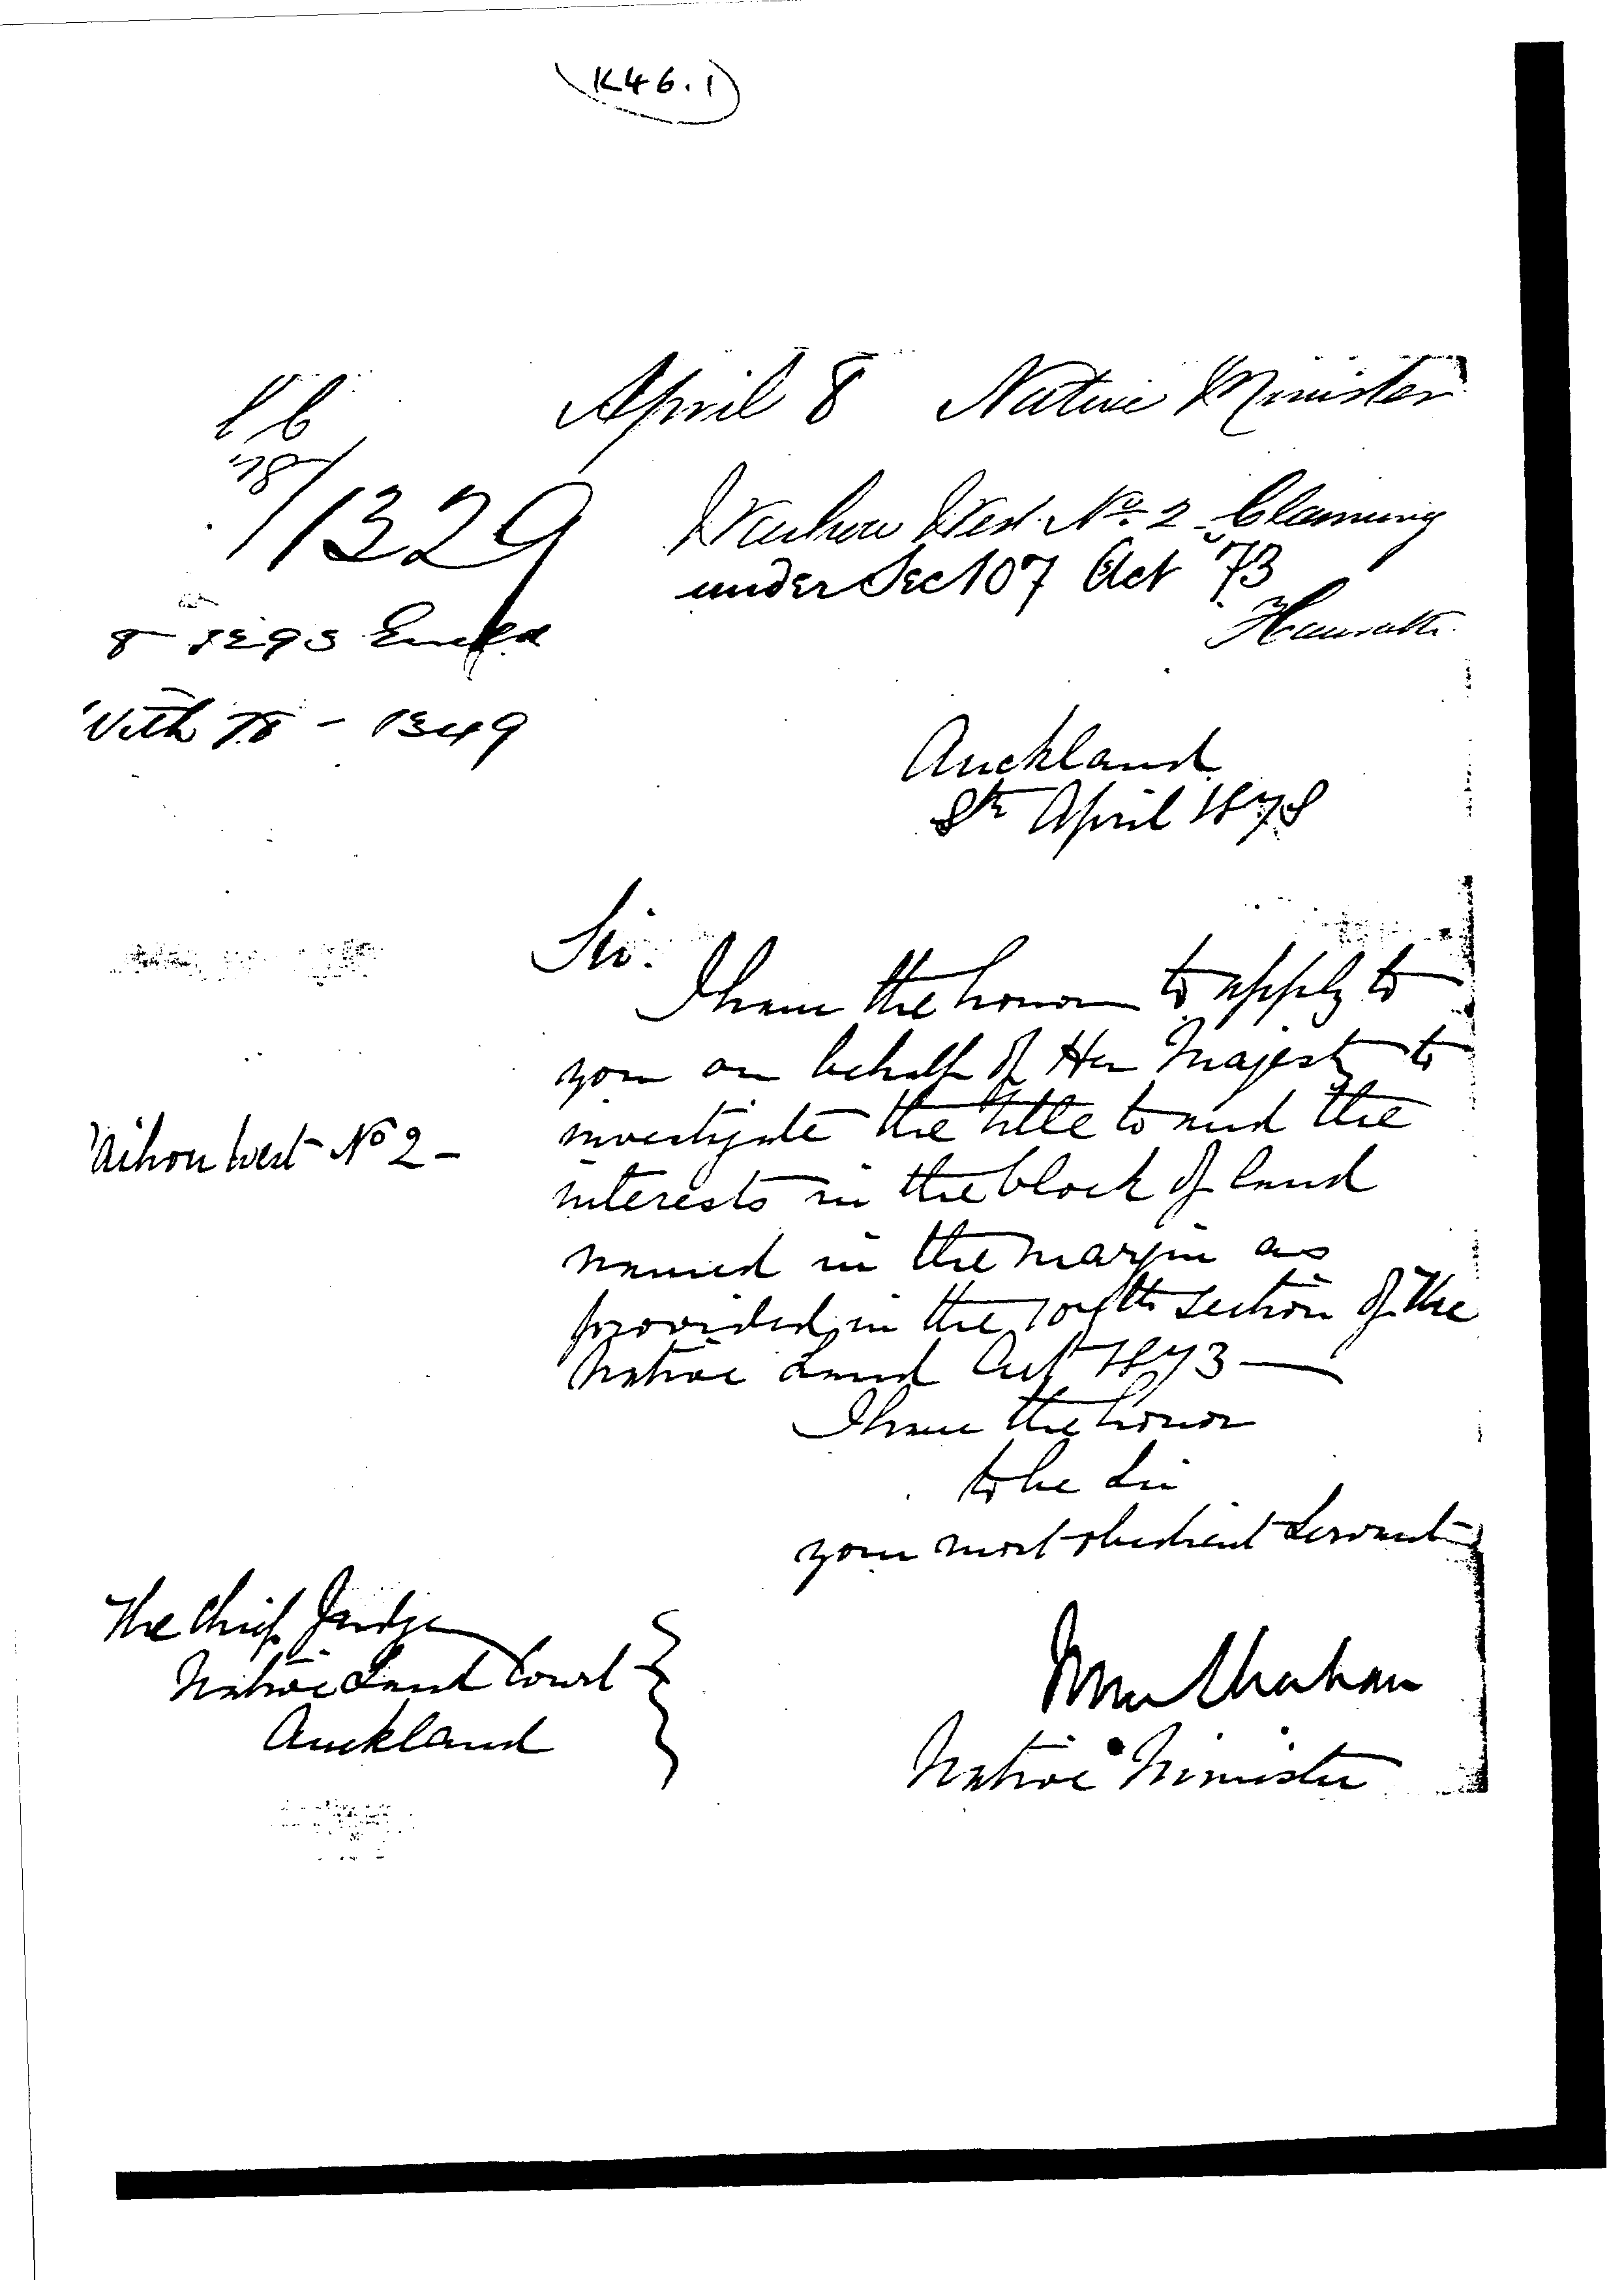 K46.1
April 8 Native Minister
78/1329
Waihou West No. 2 Claiming
under Sec 107 Act '73
With 78 - 1349
Auckland
8th April 1878
Sir.
I have the honor to apply to
you on behalf of Her Majesty to
investigate the title to and the
Waihou West No 2 -
interests in the block of land
named in the margin as
provided in the 107th Section of the
Native Land Act 1873 —
I have the honor
to be Sir
your most obedient Servant
The Chief Judge
Native Land Court
Auckland
Native Minister